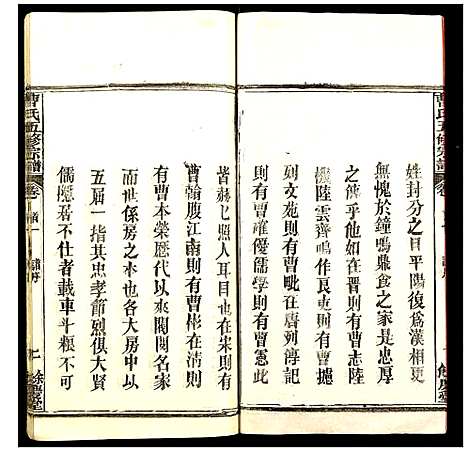 曹氏五修宗譜
姓封分之日平陽復爲漢相更
無愧於鐘鳴鼎食之家是忠厚
之傳乎其他如在晋則有曹志
機陸雲齊鳴作良將則有曹
列文苑則有曹 在唐列傳記
則有曹確優儒學則有曹憲此
皆赫七照人耳目也在宋則有
曹翰腹江南則有曹彬在清則
有曹本榮歷代以來閥閱名家
而世系房之本也各大房中以
五届一指其忠孝節烈俱大賢
儒隱君不仕者載車斗糧不可
曹氏五修宗譜
卷首一
譜序
七
餘慶堂